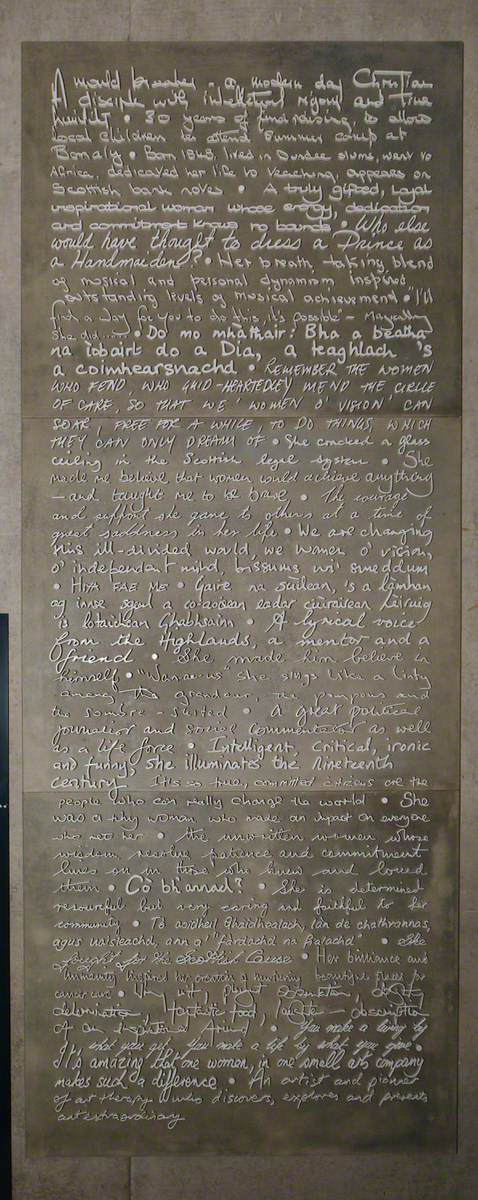 A mould breaker - a modern day Christian
A disciple with intellectual rigour and true
humility • 30 years of fundraising, to allow
local children to atend summer camp at
Bonaly • Born 1848, lived in Dundee slums, went to
Africa, dedicated her life to teaching, appears on
Scottish bank notes • A truly gifted, loyal
inspirational woman whose energy, dedication
and commitment knows no bounds • Who else
would have thought to dress a Prince as
a Handmaiden? • Her breath taking blend
of musical and personal dynamism inspired
outstanding levels of musical achievement • "I'll
find a way for you to do this, it's possible" -
She did..... • Do mo mhathair: Bha a beatha
na ìobairt do a Dia, a teaghlach 's
a coimhearsnachd • REMEMBER THE WOMEN
WHO FEND, WHO GUID-HEARTEDLEY MEND THE CIRCLE
OF CARE, SO THAT WE 'WOMEN O' VISION' CAN
SOAR, FREE FOR A WHILE, TO DO THINGS, WHICH
THEY CAN ONLY DREAM OF • She cracked a glass
ceiling in the Scottish legal system • She
made me believe that women could achieve anything
- and taught me to be brave • The courage
and support she gave to others at a time of
great saddness in her life • We are changing
this ill-divided world, we women o' vision,
o' independant mind, bissums wi' smeddum
• HIYA FAE ME • Gaire na sùilean, 's a làmhan
ag innse sgeul a co-aoisean eadar cùirtearan
is Ghabhsainn • A lyrical voice
from the Highlands, a mentor and a
friend • She made him believe in
himself • she sings like a linty
among the grandeur, the pompous and
the sombre-suited • A great political
journalist and social commentator as well
as a life force • Intelligent, critical, ironic
and funny, she illuminates the nineteenth
century It's so true, committed citizens are the
people who can really change the world • She
was a tiny woman who made an impact on everyone
who met her • The unwritten women whose
wisdom, resolve patience and commitment
lives on in those who knew and loved
them • Co bh'annad? • She is determined
resourceful but very caring and faithful to her
community • Tè aoidheil Ghaidhealach, làn de chathrannas,
agus uaisleachd, ann a "fàrdachd na Gàlachd" • She
fought for the Scottish Cause • Her brilliance and
humanity inspired her creation of nurturing beautiful spaces for
cancer care • Wry wit, dignity
determination, fantastic food, laughter - observation
of an • You make a living by
what you get, you make a life by what you give •
It's amazing that one women, in one small arts company
makes such a difference • An artist and pioneer
of art therapy who discovers, explores and presents
art extraordinary